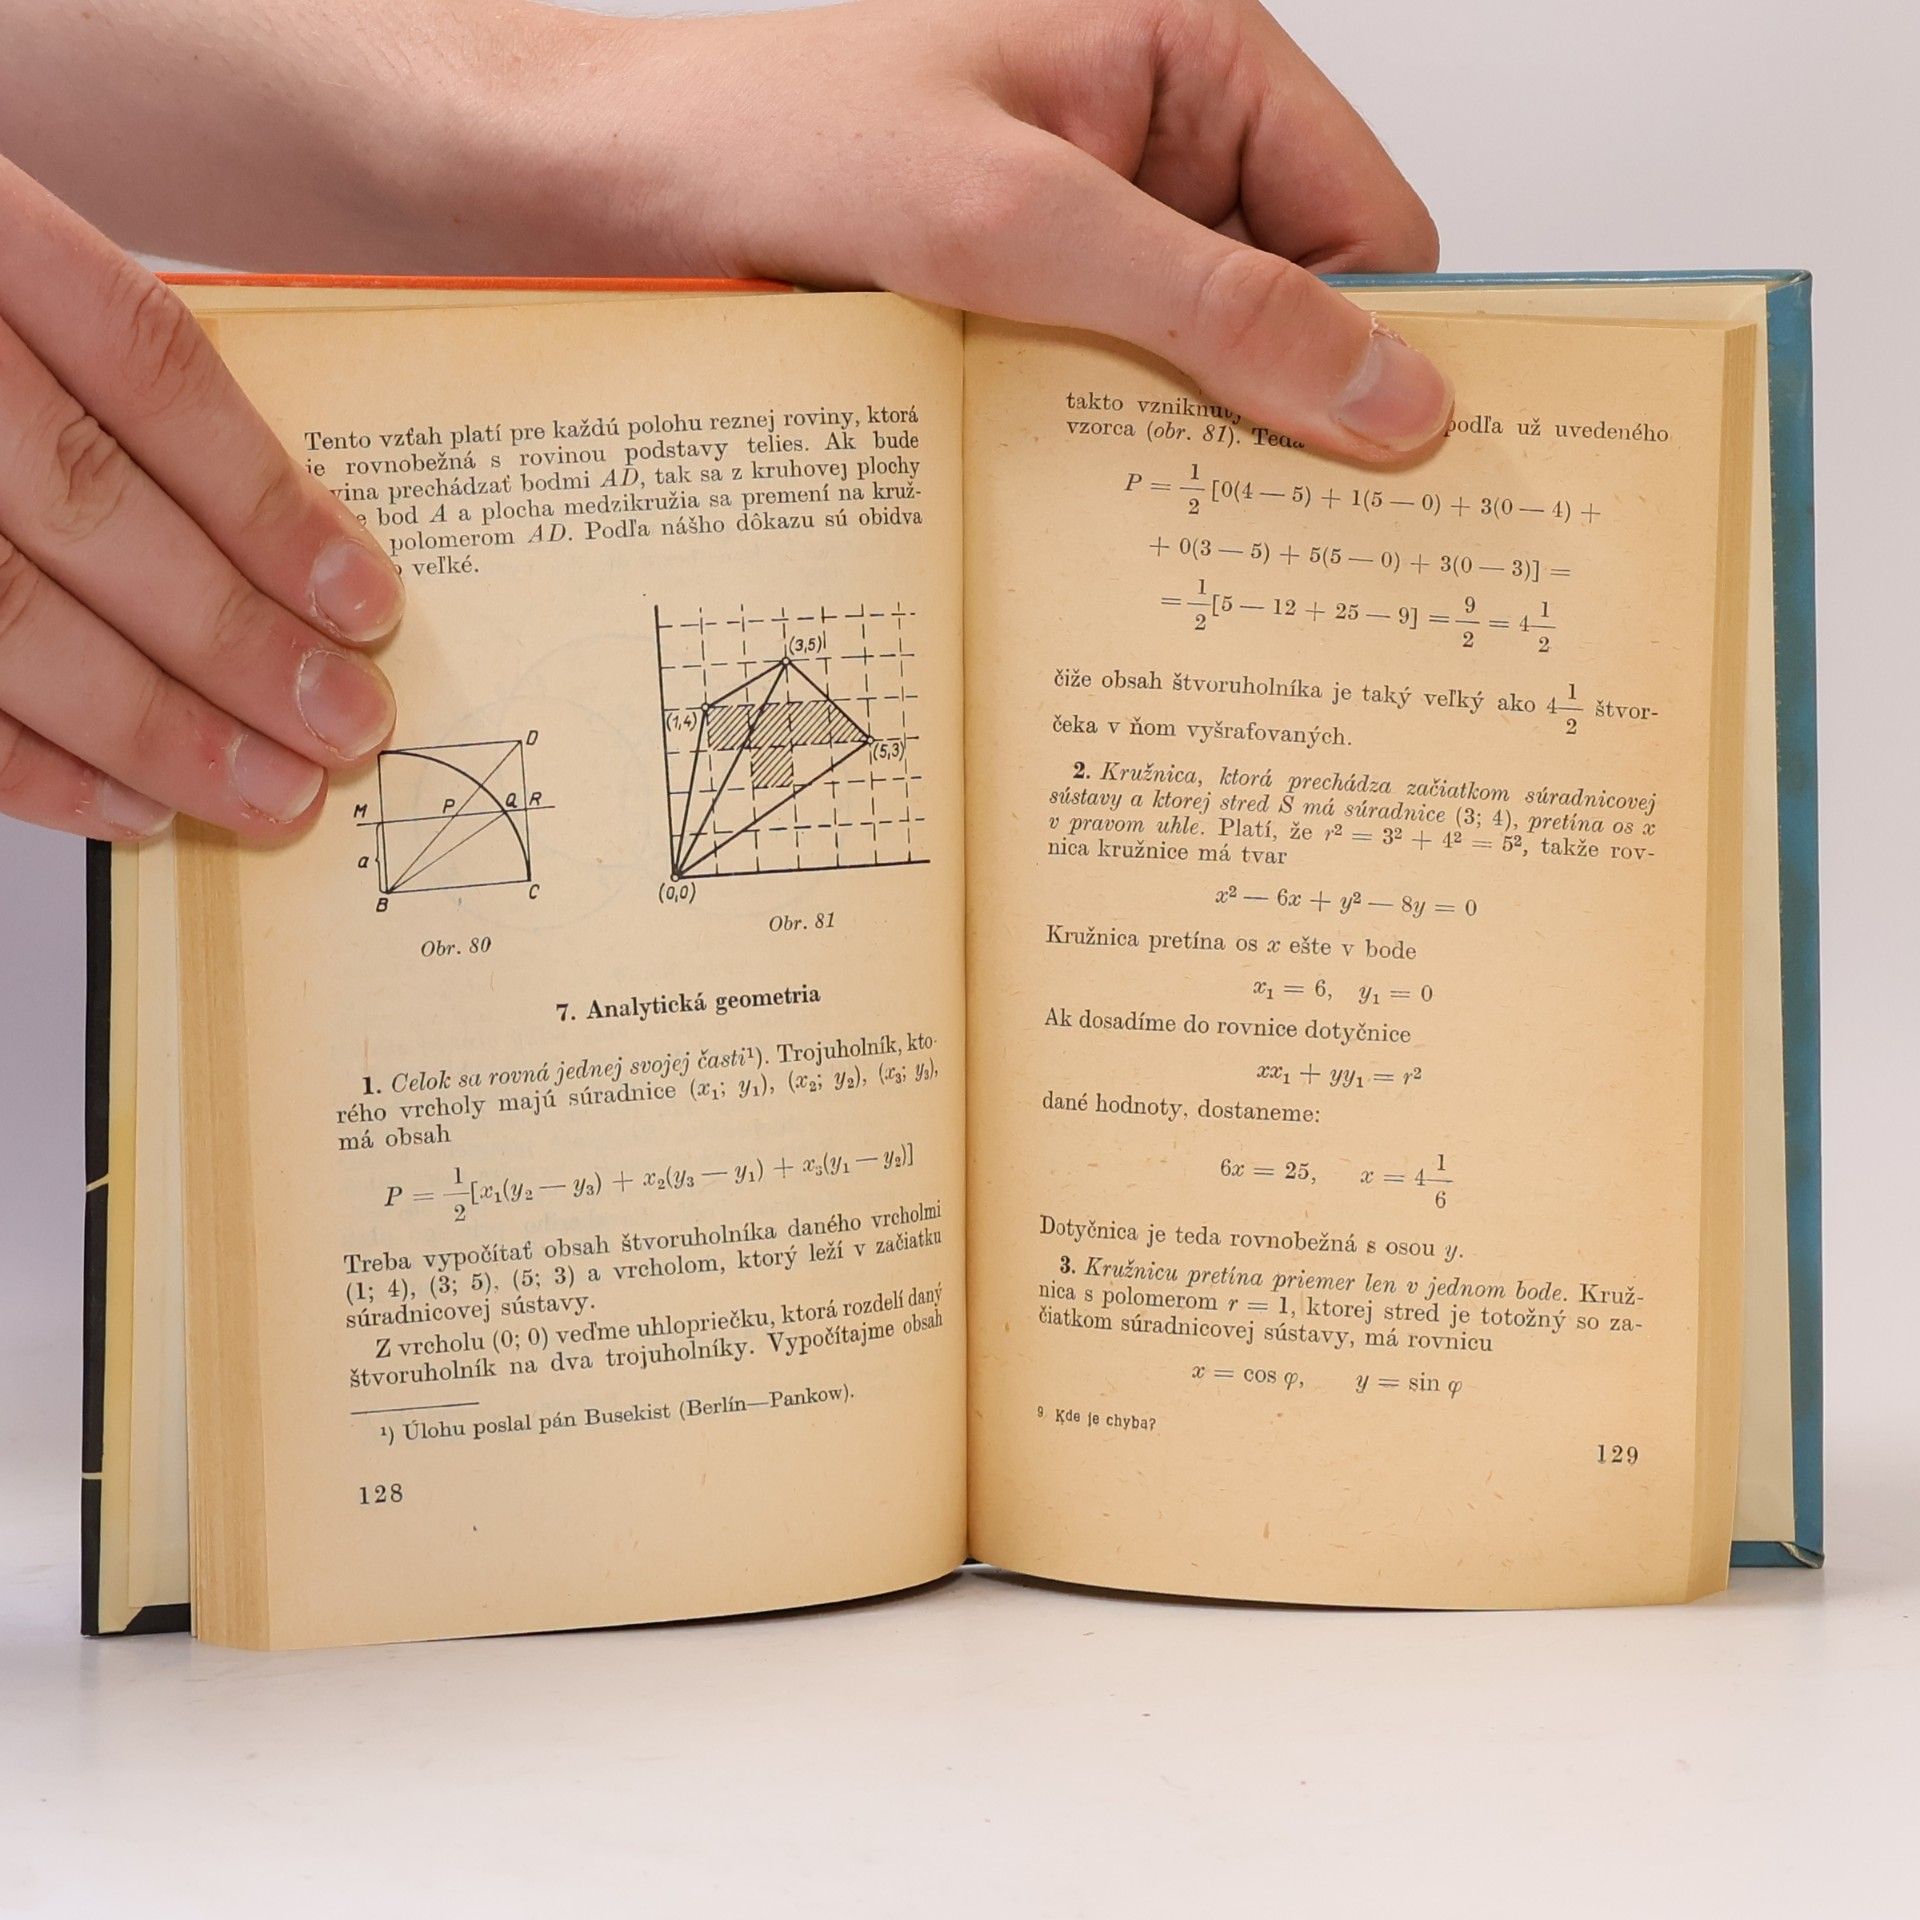 Tento vzťah platí pre každú polohu reznej roviny, ktorá
je rovnobežná s rovinou podstavy telies. Ak bude
prechádzať bodmi AD, tak sa z kruhovej plochy
bod A a plocha medzikružia sa premení na kruž-
polomerom AD. Podľa nášho dôkazu sú obidva
veľké.
D
M
P
Q
R
a
B
C
Obr. 80
(3,5)
(1,4)
(5,3)
(0,0)
Obr. 81
7. Analytická geometria
1. Celok sa rovná jednej svojej časti¹). Trojuholník, kto-
rého vrcholy majú súradnice (x₁; y₁), (x₂; y₂), (x₃; y₃),
má obsah
P = 1/2 [x₁(y₂ — y₃) + x₂(y₃ — y₁) + x₃(y₁ — y₂)]
Treba vypočítať obsah štvoruholníka daného vrcholmi
(1; 4), (3; 5), (5; 3) a vrcholom, ktorý leží v začiatku
súradnicovej sústavy.
Z vrcholu (0; 0) veďme uhlopriečku, ktorá rozdelí daný
štvoruholník na dva trojuholníky. Vypočítajme obsah
¹) Úlohu poslal pán Busekist (Berlín—Pankow).
128
takto
podľa už uvedeného
vzorca (obr. 81). Teda
P = 1/2 [0(4 — 5) + 1(5 — 0) + 3(0 — 4) +
+ 0(3 — 5) + 5(5 — 0) + 3(0 — 3)] =
= 1/2 [5 — 12 + 25 — 9] = 9/2 = 4 1/2
čiže obsah štvoruholníka je taký veľký ako 4 1/2 štvor-
čeka v ňom vyšrafovaných.
2. Kružnica, ktorá prechádza začiatkom súradnicovej
sústavy a ktorej stred S má súradnice (3; 4), pretína os x
v pravom uhle. Platí, že r² = 3² + 4² = 5², takže rov-
nica kružnice má tvar
x² — 6x + y² — 8y = 0
Kružnica pretína os x ešte v bode
x₁ = 6, y₁ = 0
Ak dosadíme do rovnice dotyčnice
xx₁ + yy₁ = r²
dané hodnoty, dostaneme:
6x = 25, x = 4 1/6
Dotyčnica je teda rovnobežná s osou y.
3. Kružnicu pretína priemer len v jednom bode. Kruž-
nica s polomerom r = 1, ktorej stred je totožný so za-
čiatkom súradnicovej sústavy, má rovnicu
x = cos φ, y = sin φ
9 Kde je chyba?
129